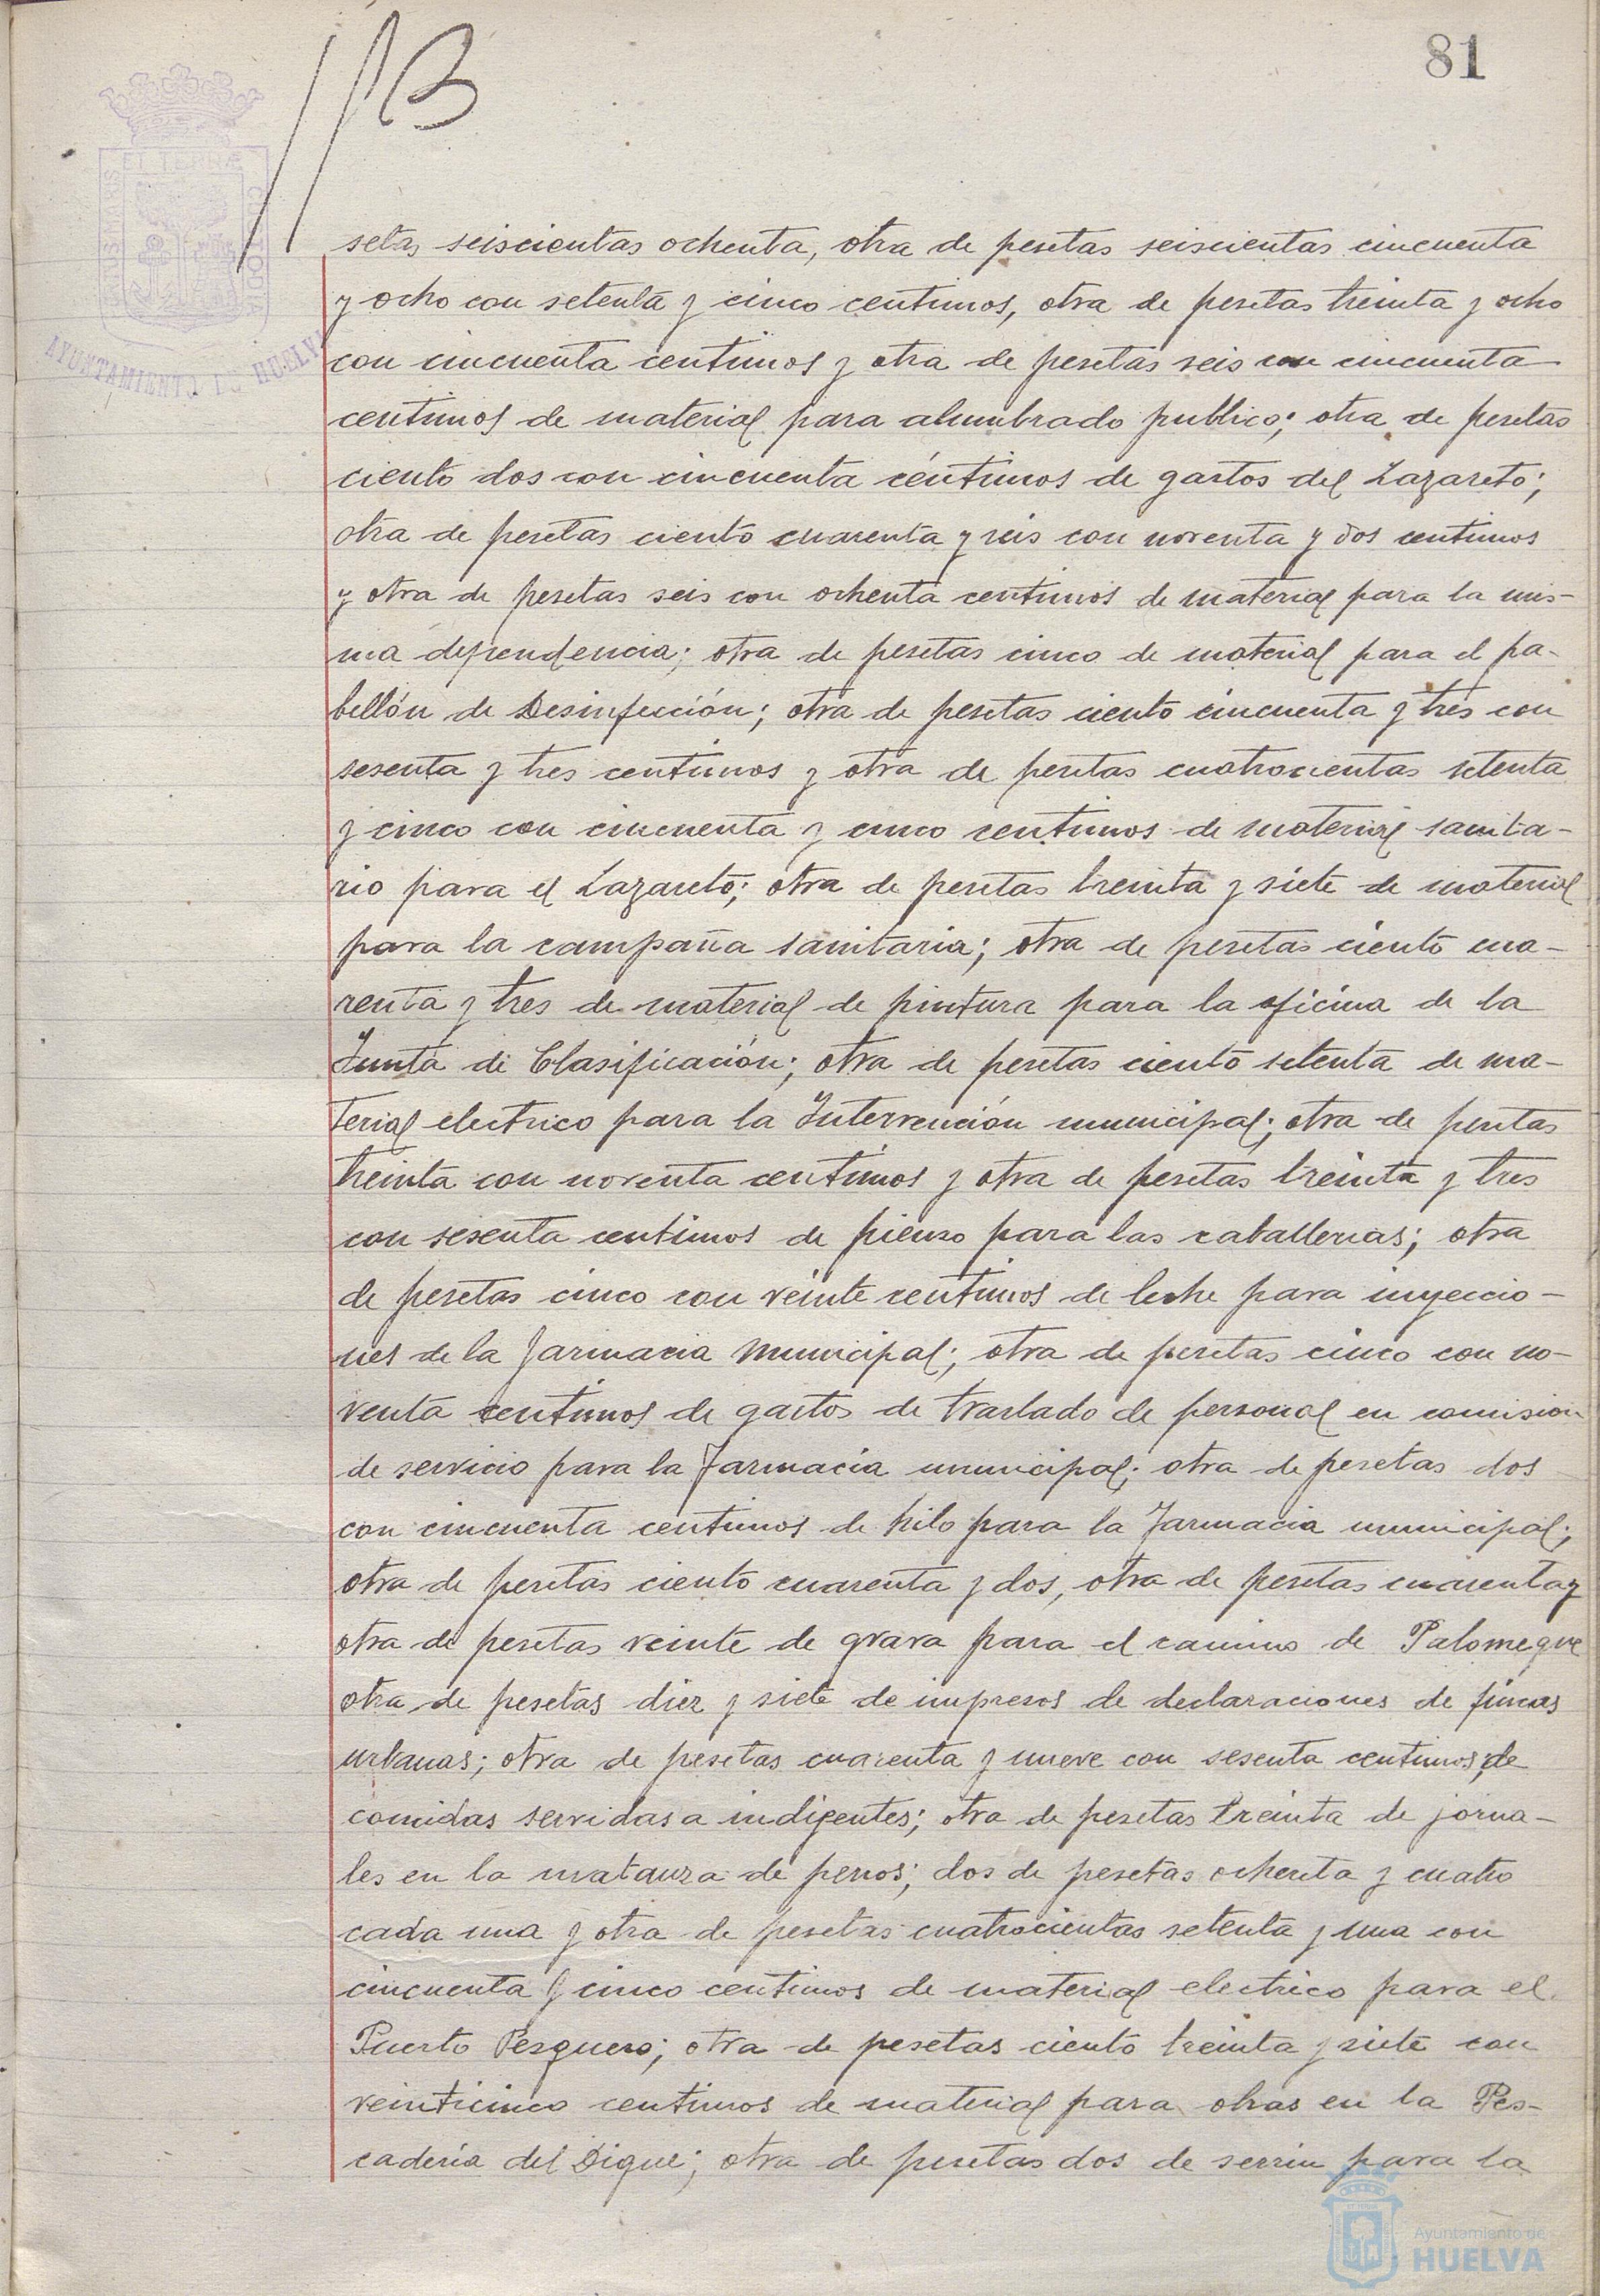 81
PORTUS MARIS
ET TERRÆ
CUSTODIA
AYUNTAMIENTO DE HUELVA
setas seiscientas ochenta, otra de pesetas seiscientas cincuenta
y ocho con setenta y cinco centimos, otra de pesetas treinta y ocho
con cincuenta centimos y otra de pesetas seis con cincuenta
centimos de material para alumbrado publico; otra de pesetas
ciento dos con cincuenta céntimos de gastos del Lazareto;
otra de pesetas ciento cuarenta y seis con noventa y dos centimos
y otra de pesetas seis con ochenta centimos de material para la mis-
ma dependencia; otra de pesetas cinco de material para el pa-
bellón de Desinfección; otra de pesetas ciento cincuenta y tres con
sesenta y tres centimos y otra de pesetas cuatrocientas setenta
y cinco con cincuenta y cinco centimos de material sanita-
rio para el Lazareto; otra de pesetas treinta y siete de material
para la campaña sanitaria; otra de pesetas ciento cua-
renta y tres de material de pintura para la oficina de la
Junta de Clasificación; otra de pesetas ciento setenta de ma-
terial electrico para la Intervención municipal; otra de pesetas
treinta con noventa centimos y otra de pesetas treinta y tres
con sesenta centimos de pienso para las caballerias; otra
de pesetas cinco con veinte centimos de leche para inyeccio-
nes de la farmacia Municipal; otra de pesetas cinco con no-
venta centimos de gastos de traslado de personal en comision
de servicio para la farmacia municipal; otra de pesetas dos
con cincuenta centimos de hilo para la farmacia municipal;
otra de pesetas ciento cuarenta y dos, otra de pesetas cuarenta y
otra de pesetas veinte de grava para el camino de Palomeque
otra de pesetas diez y siete de impresos de declaraciones de fincas
urbanas; otra de pesetas cuarenta y nueve con sesenta centimos; de
comidas servidas a indigentes; otra de pesetas treinta de jorna-
les en la matanza de perros; dos de pesetas ochenta y cuatro
cada una y otra de pesetas cuatrocientas setenta y una con
cincuenta y cinco centimos de material electrico para el
Puerto Pesquero; otra de pesetas ciento treinta y siete con
veinticinco centimos de material para obras en la Pes-
cadería del Dique; otra de pesetas dos de serrin para la
Ayuntamiento de
HUELVA